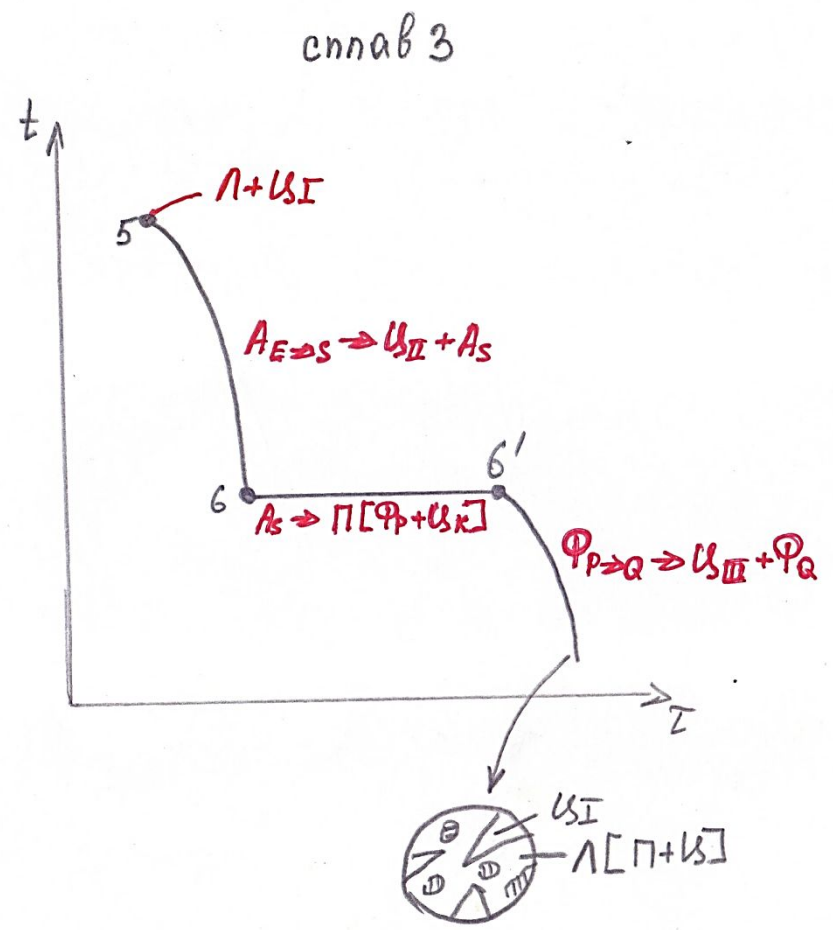 сплав 3
t
Л+ЦI
5
A_E→S → Ц_II + A_S
6
6'
A_S → П[Ф_P+Ц_K]
Ф_P→Q → Ц_III + Ф_Q
τ
ЦI
Л[П+Ц]